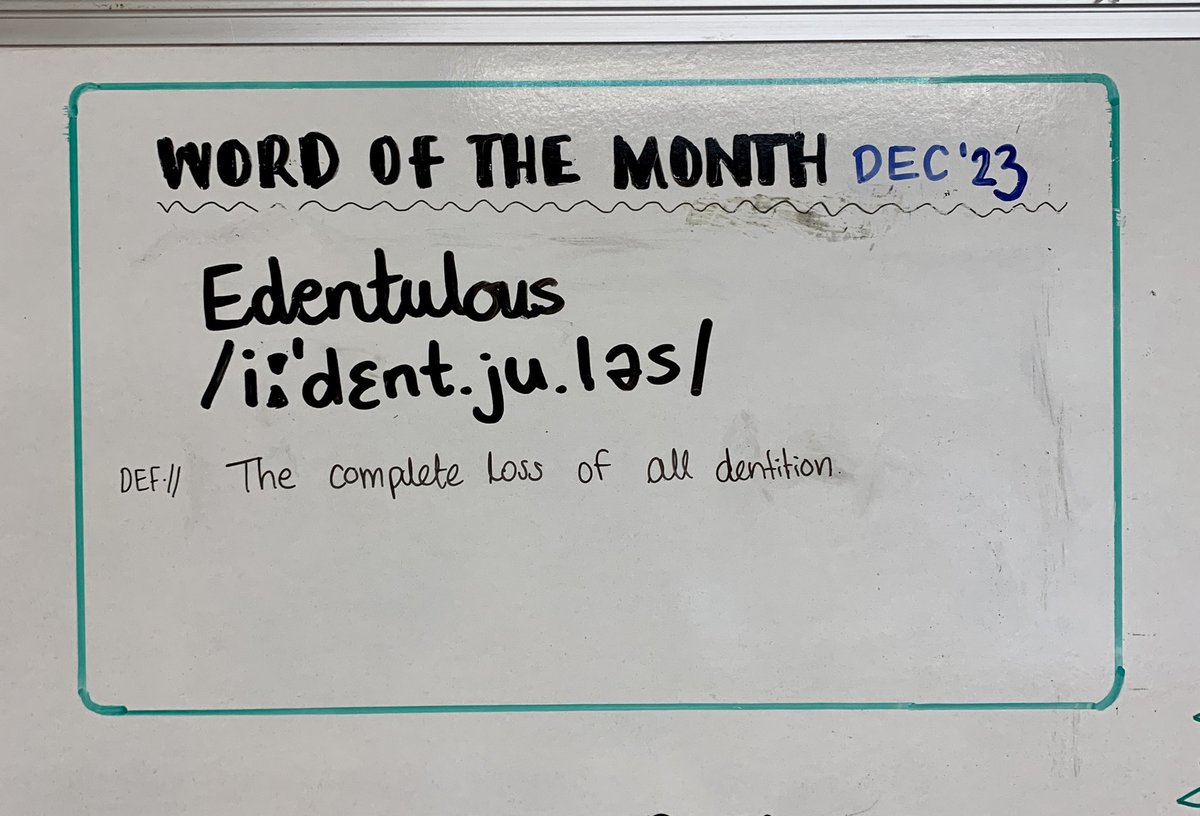 WORD OF THE MONTH DEC'23
Edentulous
/iːˈdɛnt.ju.ləs/
DEF.// The complete loss of all dentition.